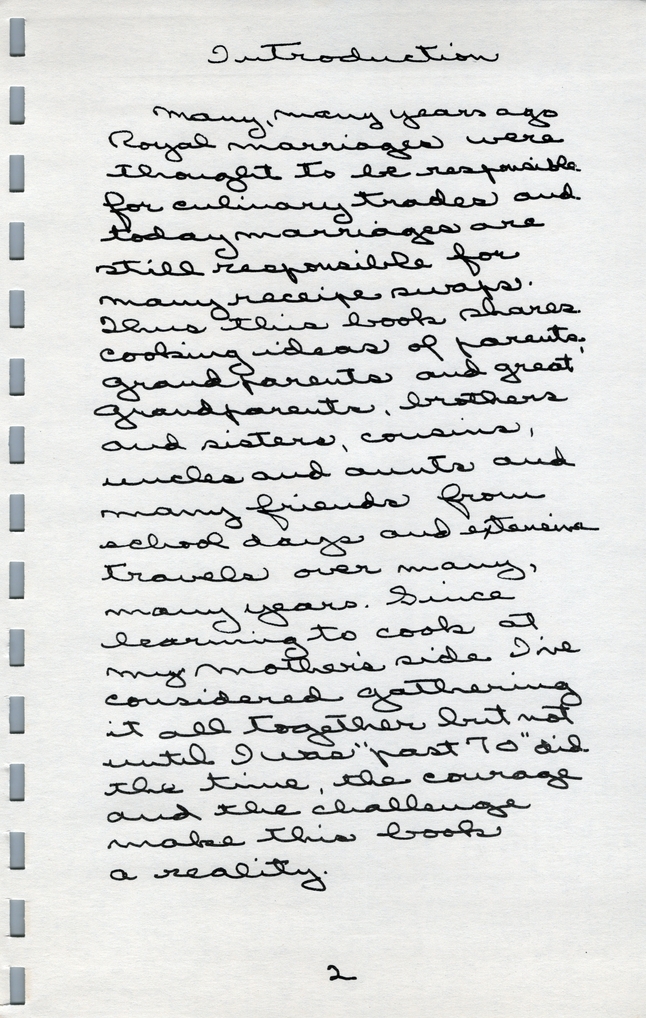 Introduction
Many, many years ago
Royal marriages were
thought to be responsible
for culinary trades and
today marriages are
still responsible for
many receipe swaps.
Thus this book shares
cooking ideas of parents,
grandparents and great
grandparents, brothers
and sisters, cousins,
uncles and aunts and
many friends from
school days and extensive
travels over many,
many years. Since
learning to cook at
my mother's side I've
considered gathering
it all together but not
until I was "past 70" did
the time, the courage
and the challenge
make this book
a reality.
2